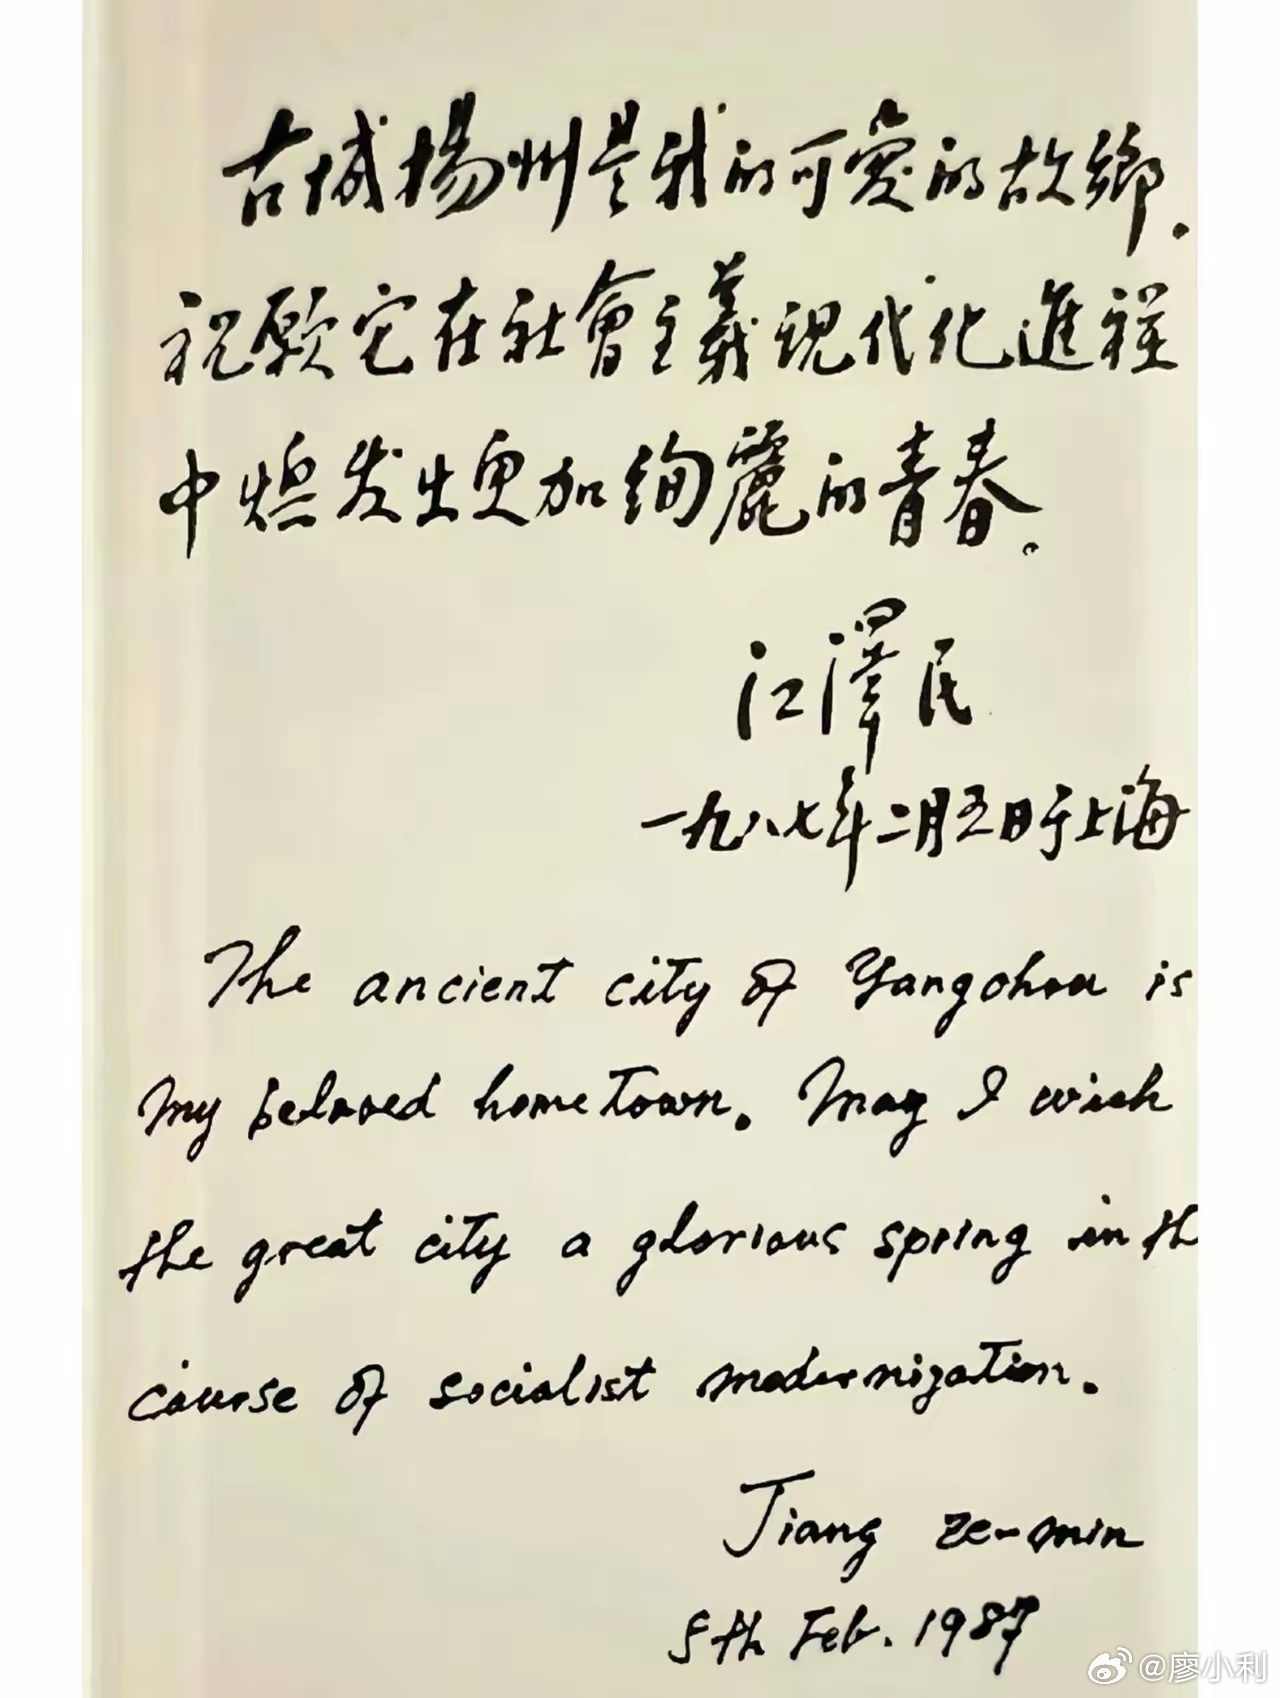 古城揚州是我的可愛的故鄉.
祝願它在社會主義现代化進程
中焕发出更加絢麗的青春.
江澤民
一九八七年二月五日于上海
The ancient city of Yangchou is
my beloved hometown. May I wish
the great city a glorious spring in th
course of socialist modernization.
Jiang ze-min
5th Feb. 1987
@廖小利